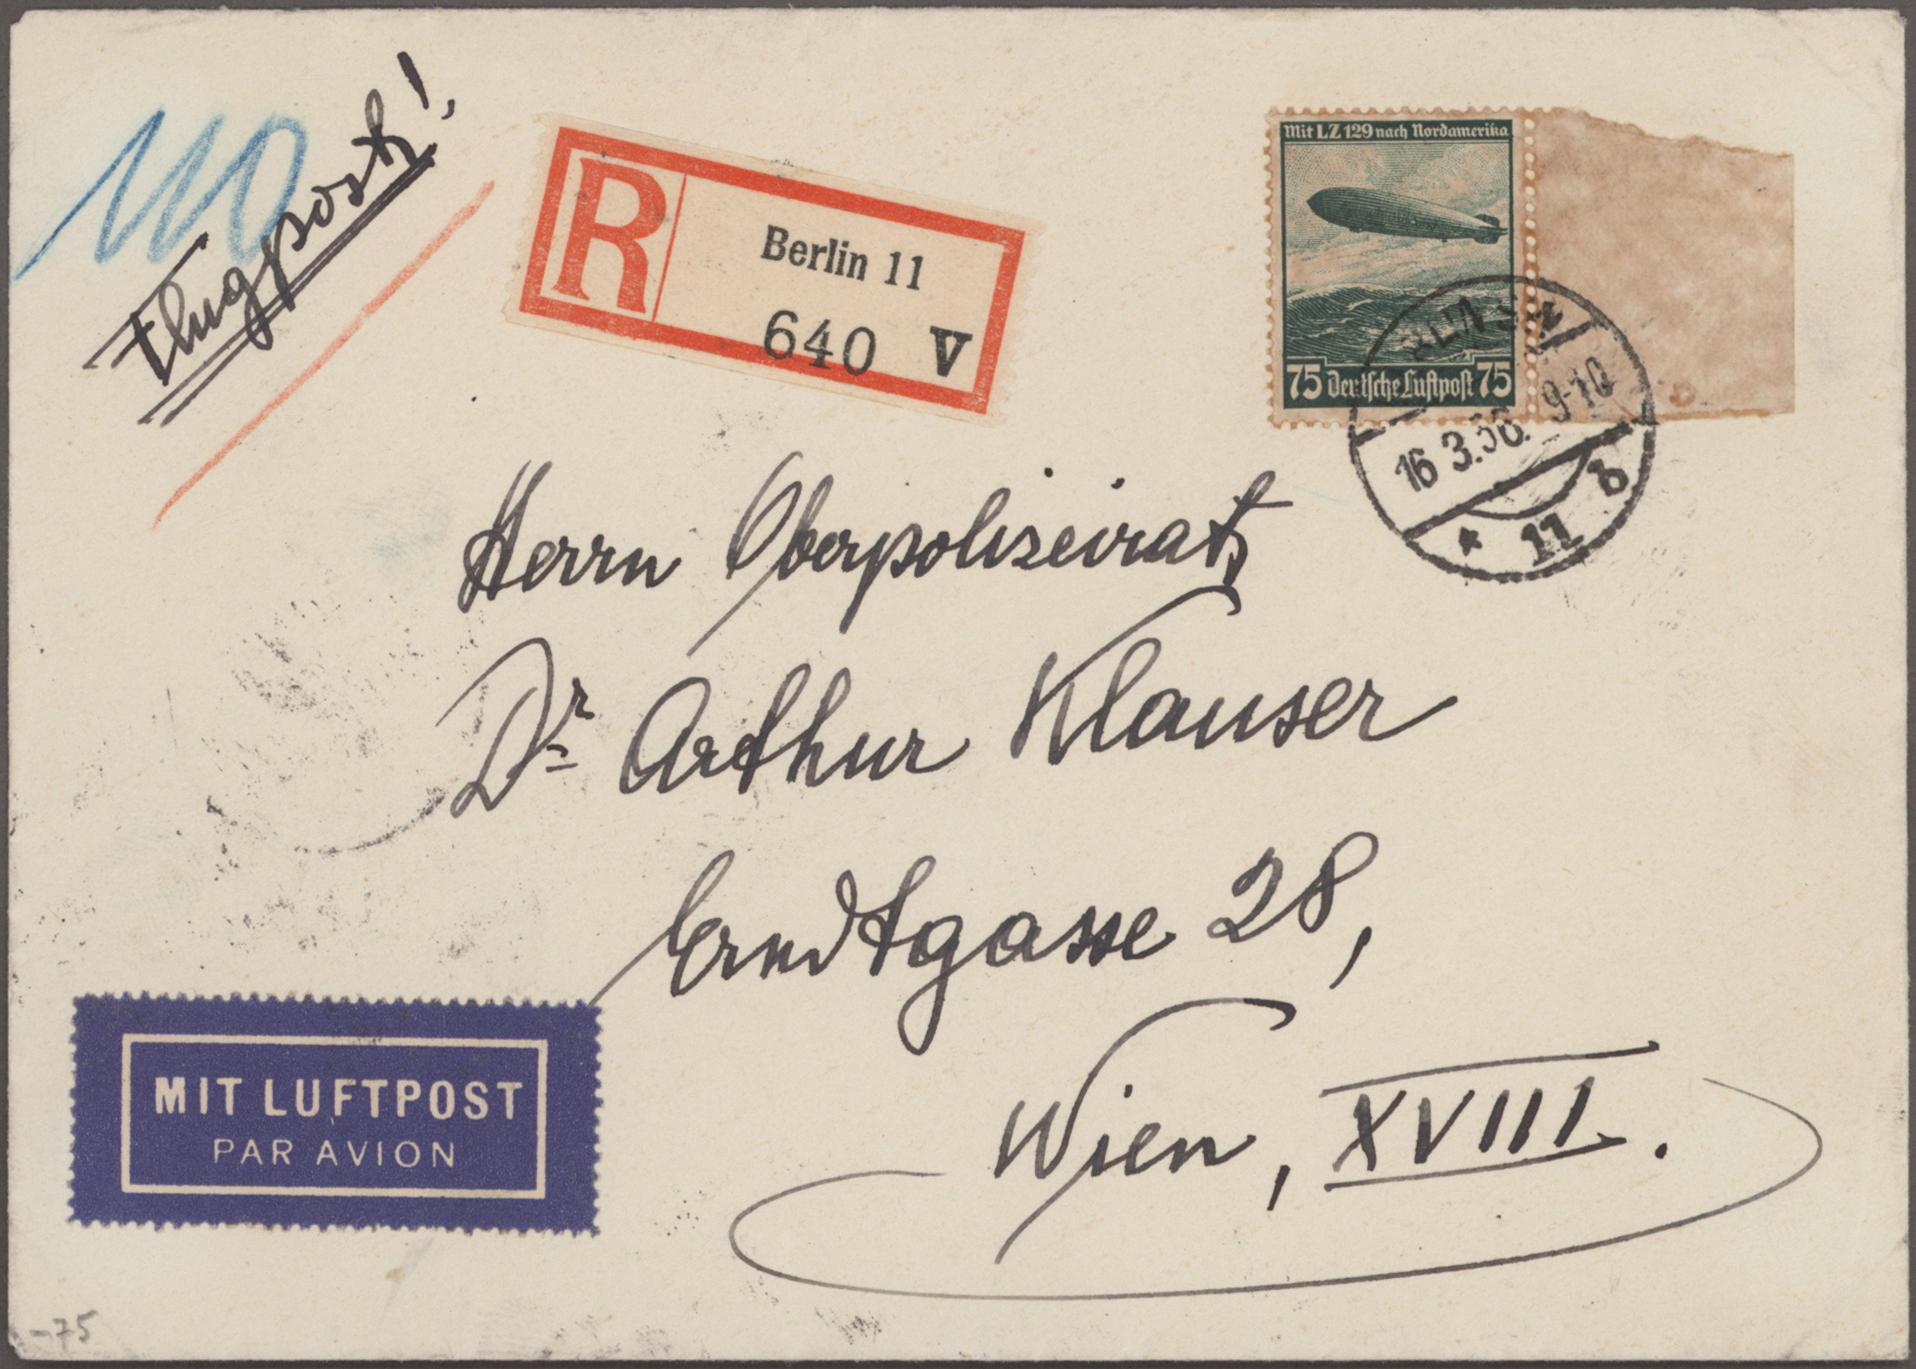 110
Flugpost!
R
Berlin 11
640 V
Mit LZ 129 nach Nordamerika
75 Deutsche Luftpost 75
16.3.36. 9-10
* 11 b
Herrn Oberpolizeirat
Dr Arthur Klauser
Erndtgasse 28,
Wien, XVIII.
MIT LUFTPOST
PAR AVION
-75